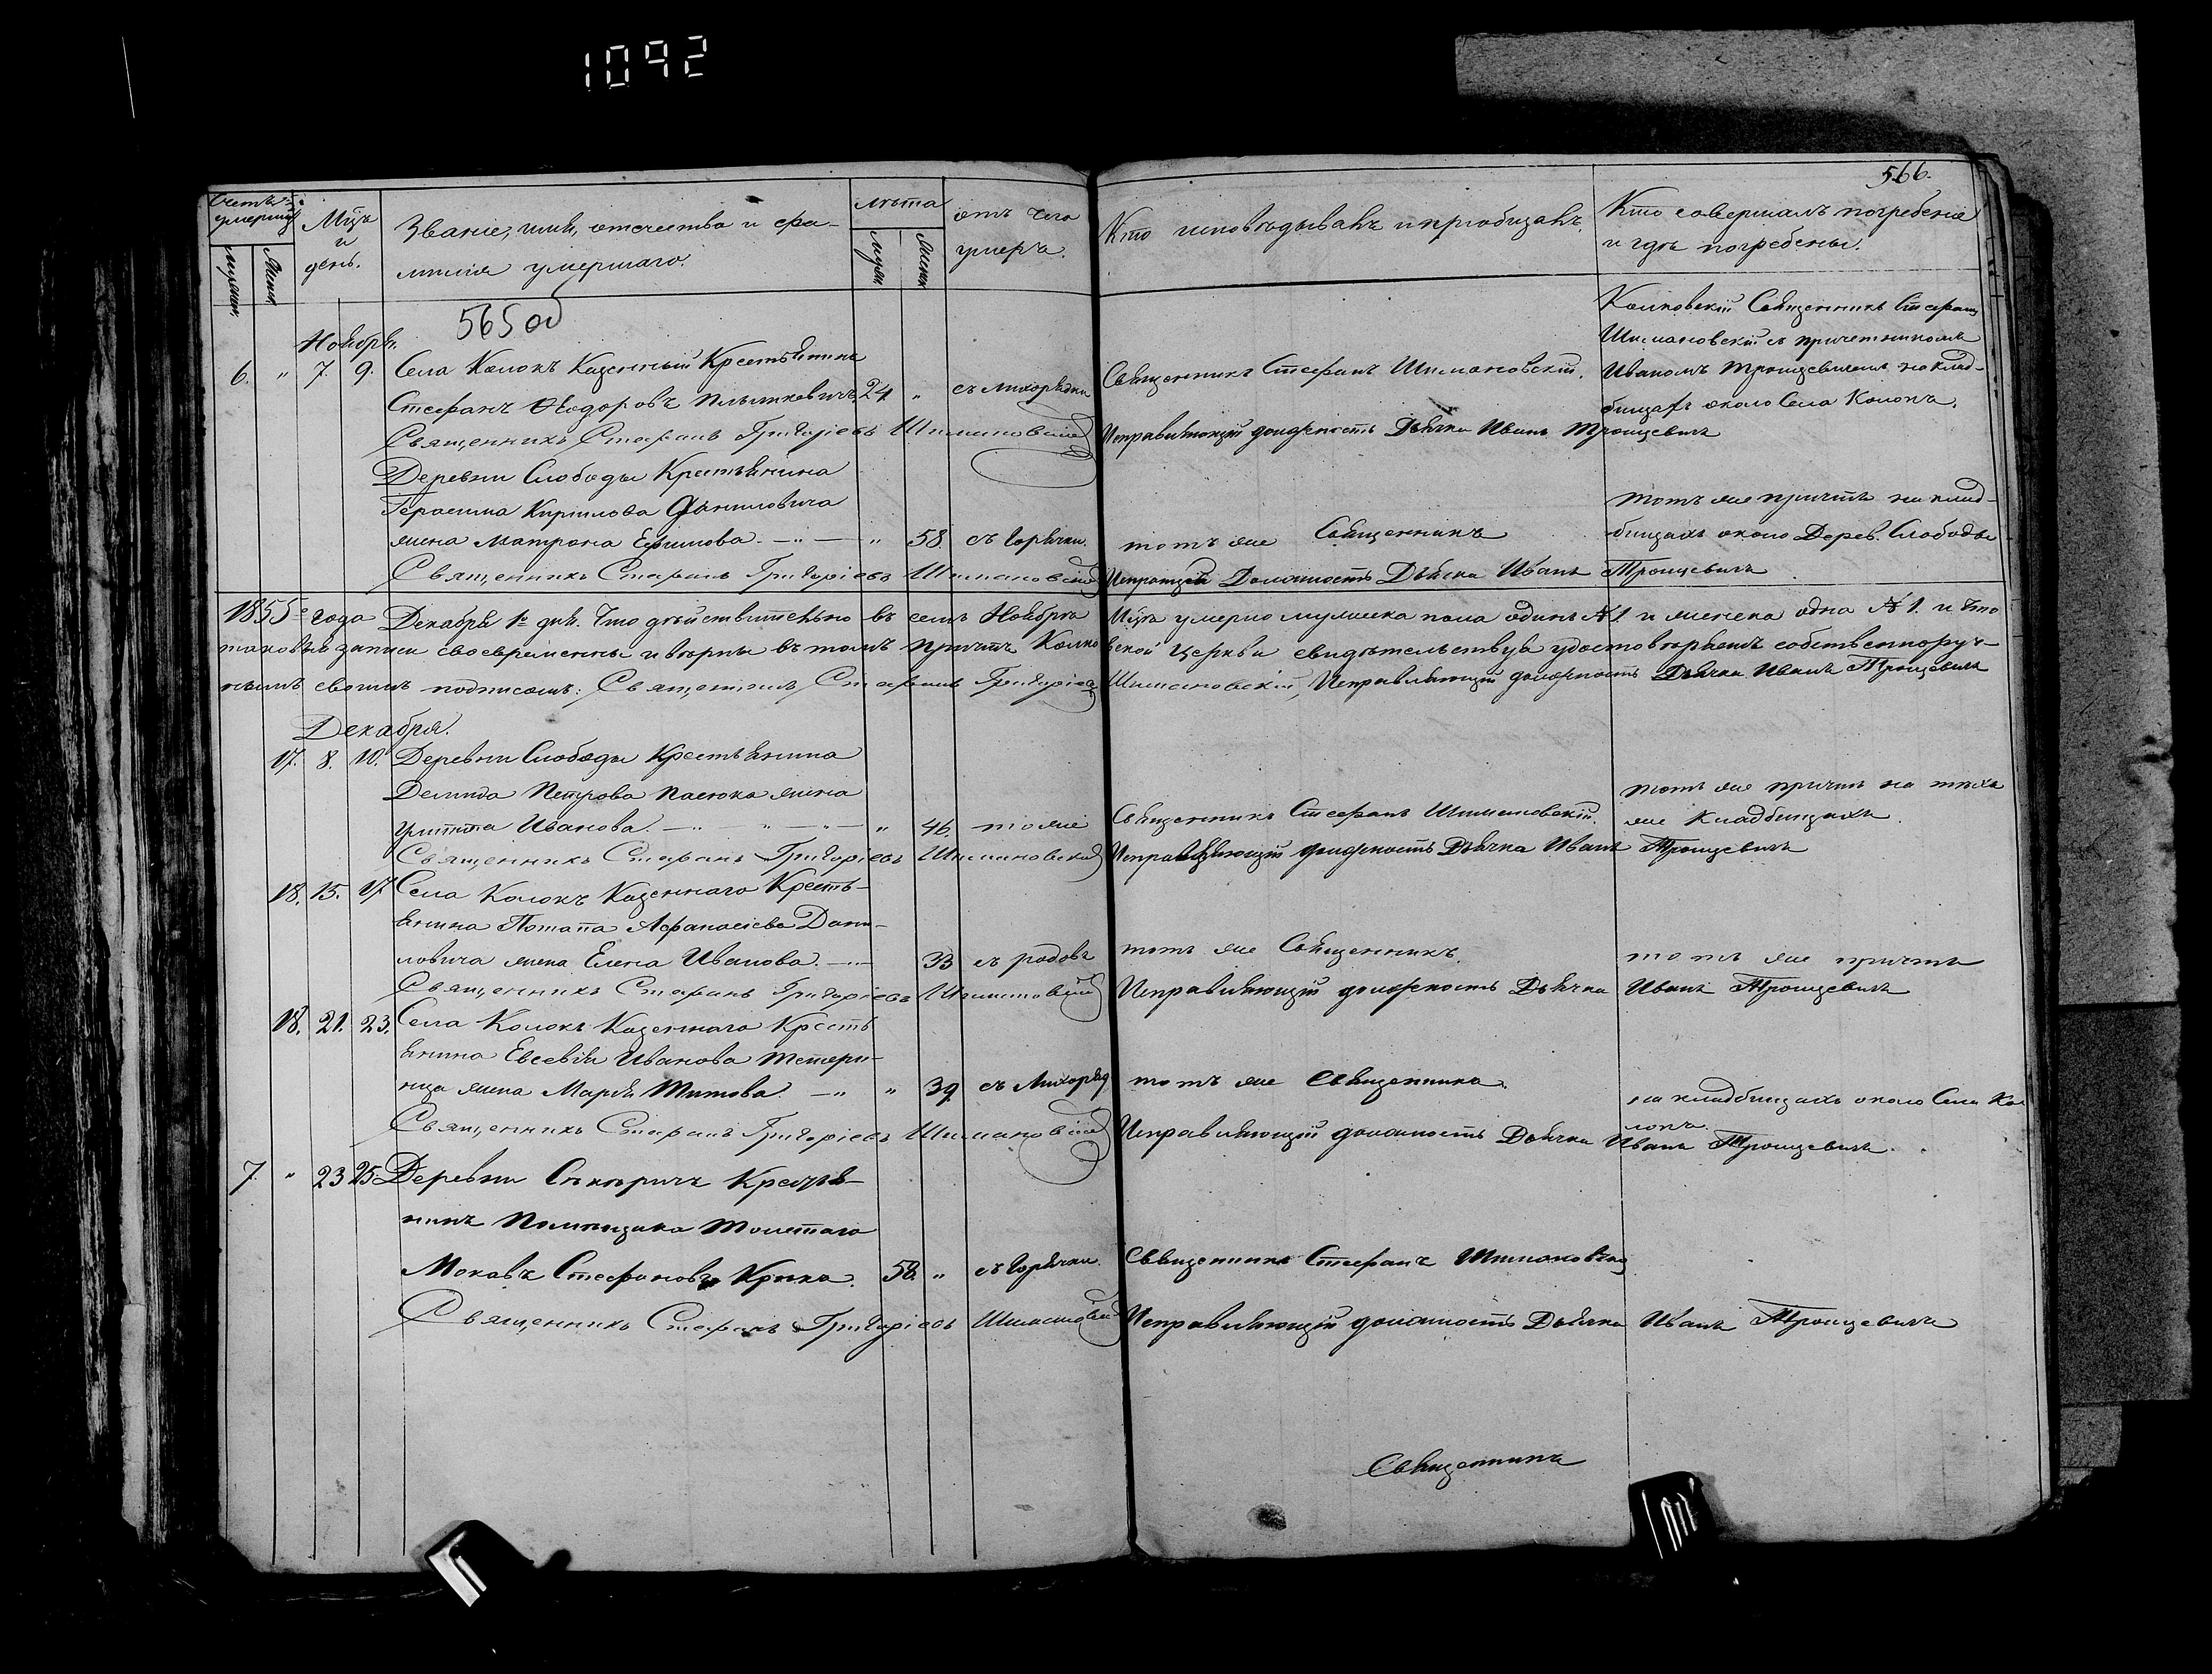 1092
566.
Счетъ умершихъ
мужеск.
Женск.
Мѣсяцъ и день.
Званіе, имя, отечество и фа-
милія умершаго.
лѣта
муж.
Женск.
отъ чего
умеръ.
Кто исповѣдывалъ и пріобщалъ.
Кто совершалъ погребеніе
и гдѣ погребены.
565 об
Ноября.
6. " 7. 9. Села Колокъ Казенный Крестьянинъ
Стефанъ Ѳедоровъ 24 " съ лихорадки
Священникъ Стефанъ Шимановскій.
Колковскій Священникъ Стефанъ
Шимановскій съ причетникомъ
Иваномъ Троицевичемъ на клад-
бищахъ около Села Колокъ.
Священникъ Стефанъ Григоріевъ Шимановскій Исправляющій должность Дьячка Иванъ Троицевичъ
Деревни Слободы Крестьянина
Герасима Кирилова Даниловича
жена Матрона Ефимова. — " — " 58. съ Горячки.
тотъ же Священникъ
тотъ же причтъ на клад-
бищахъ около Дерев. Слободы
Священникъ Стефанъ Григоріевъ Шимановскій Должность Дьячка Иванъ Троицевичъ
1855го года Декабря 1го дня. Что дѣйствительно въ семъ Ноябрѣ Мцѣ умерло мужеска пола одинъ №1 и женска одна №1. и что
таковыя записи своевременны и вѣрны въ томъ причтъ Колковской Церкви свидѣтельствуя удостовѣряемъ собственноруч-
нымъ своимъ подписомъ: Священникъ Стефанъ Григоріевъ Шимановскій, Исправляющій должность Дьячка Иванъ Троицевичъ
Декабря.
17. 8. 10. Деревни Слободы Крестьянина
Демида Петрова Пасюка жена
Улита Иванова. — " — " — " — " 46. тоже
Священникъ Стефанъ Шимановскій.
тотъ же причтъ на тѣхъ
же Кладбищахъ.
Священникъ Стефанъ Григоріевъ Шимановскій Исправляющій должность Дьячка Иванъ Троицевичъ
18. 15. 17 Села Колокъ Казеннаго Кресть-
янина Потапа Афанасіева Дани-
ловича жена Елена Иванова. — " — 33 съ родовъ
тотъ же Священникъ.
тотъ же причтъ
Священникъ Стефанъ Григоріевъ Шимановскій Исправляющій должность Дьячка Иванъ Троицевичъ
18. 21. 23. Села Колокъ Казеннаго Кресть
янина Евсевія Иванова Тетери-
нца жена Марія Титова. — " " 39 съ Лихорад
тотъ же Священникъ.
на кладбищахъ около Села Ко-
локъ.
Священникъ Стефанъ Григоріевъ Шимановскій Исправляющій должность Дьячка Иванъ Троицевичъ.
7. " 23 25 Деревни Крестья-
нинъ Помѣщика Толстаго
Стефановъ Крыка. 58. " съ Горячки.
Священникъ Стефанъ Шимановскій
Священникъ Стефанъ Григоріевъ Шимановскій Исправляющій должность Дьячка Иванъ Троицевичъ
Священникъ